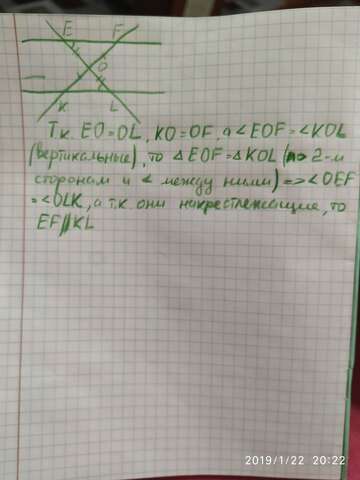 E F
O
K L
Т.к. EO=OL, KO=OF, а ∠EOF=∠KOL
(вертикальные), то △EOF=△KOL (по 2-м
сторонам и ∠ между ними) => ∠OEF
=∠OLK, а т.к. они накрестлежащие, то
EF||KL
2019/1/22 20:22